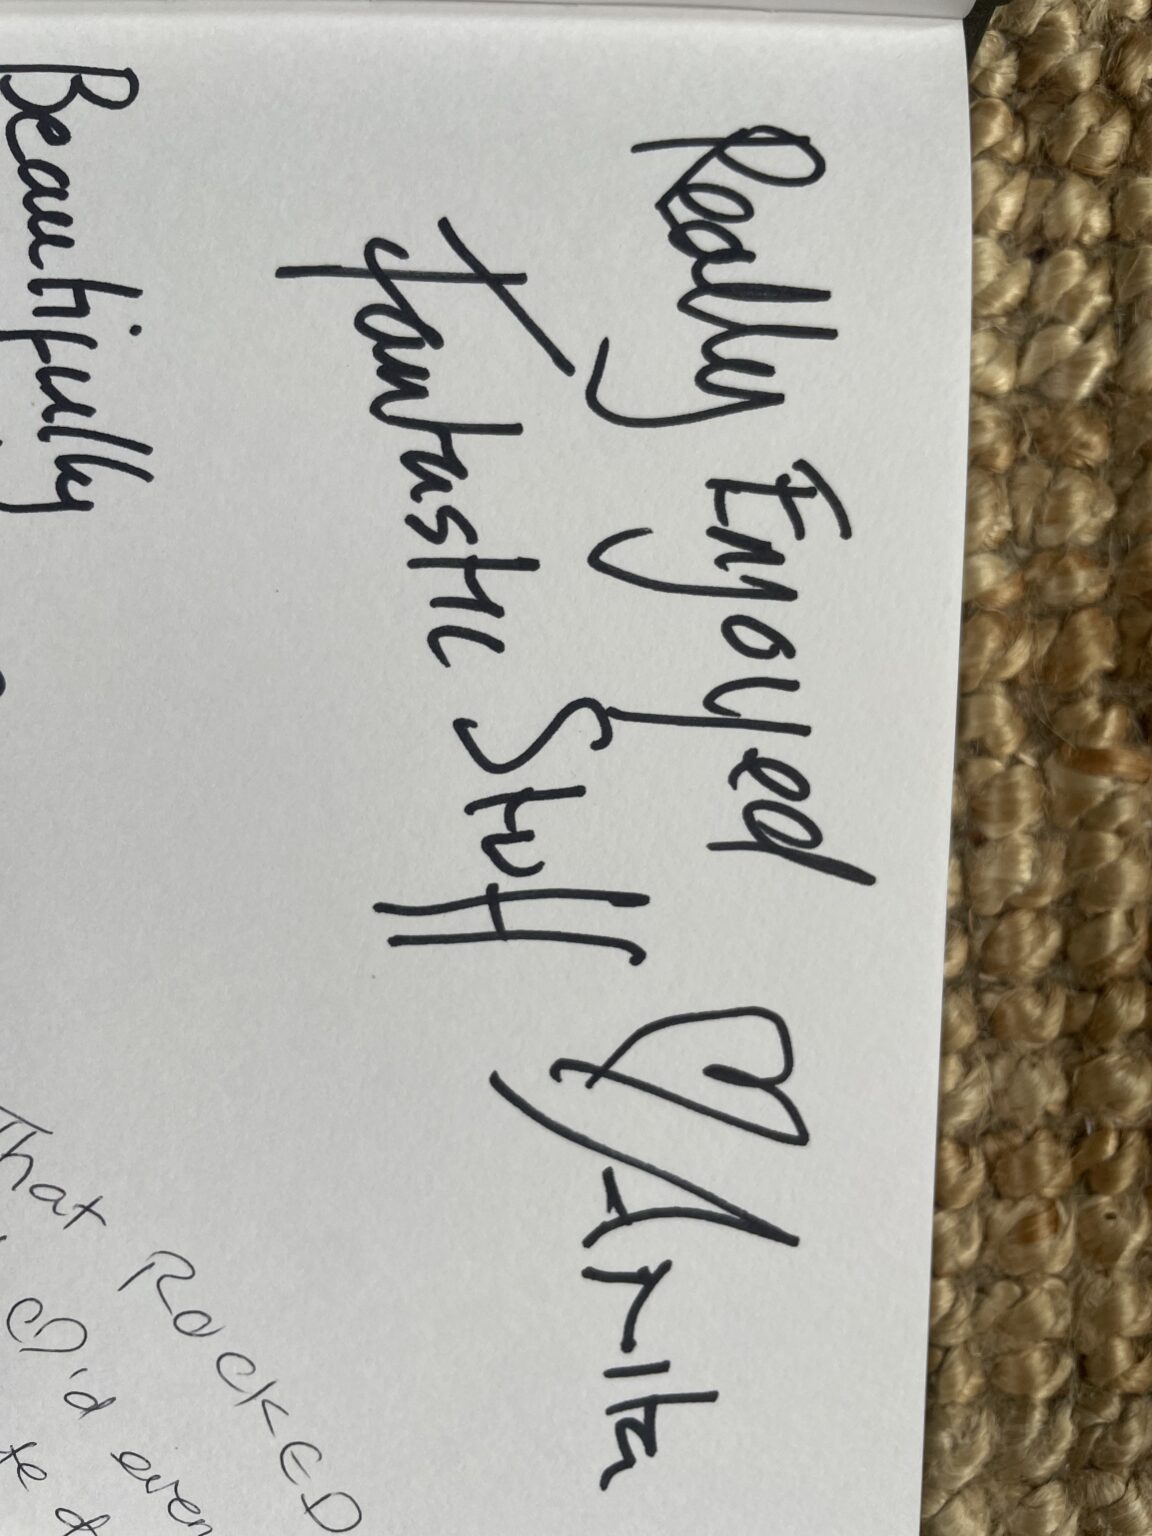 Really Enjoyed ♡
+ Fantastic Stuff
Beautifully
That ROCKED
♡'d even